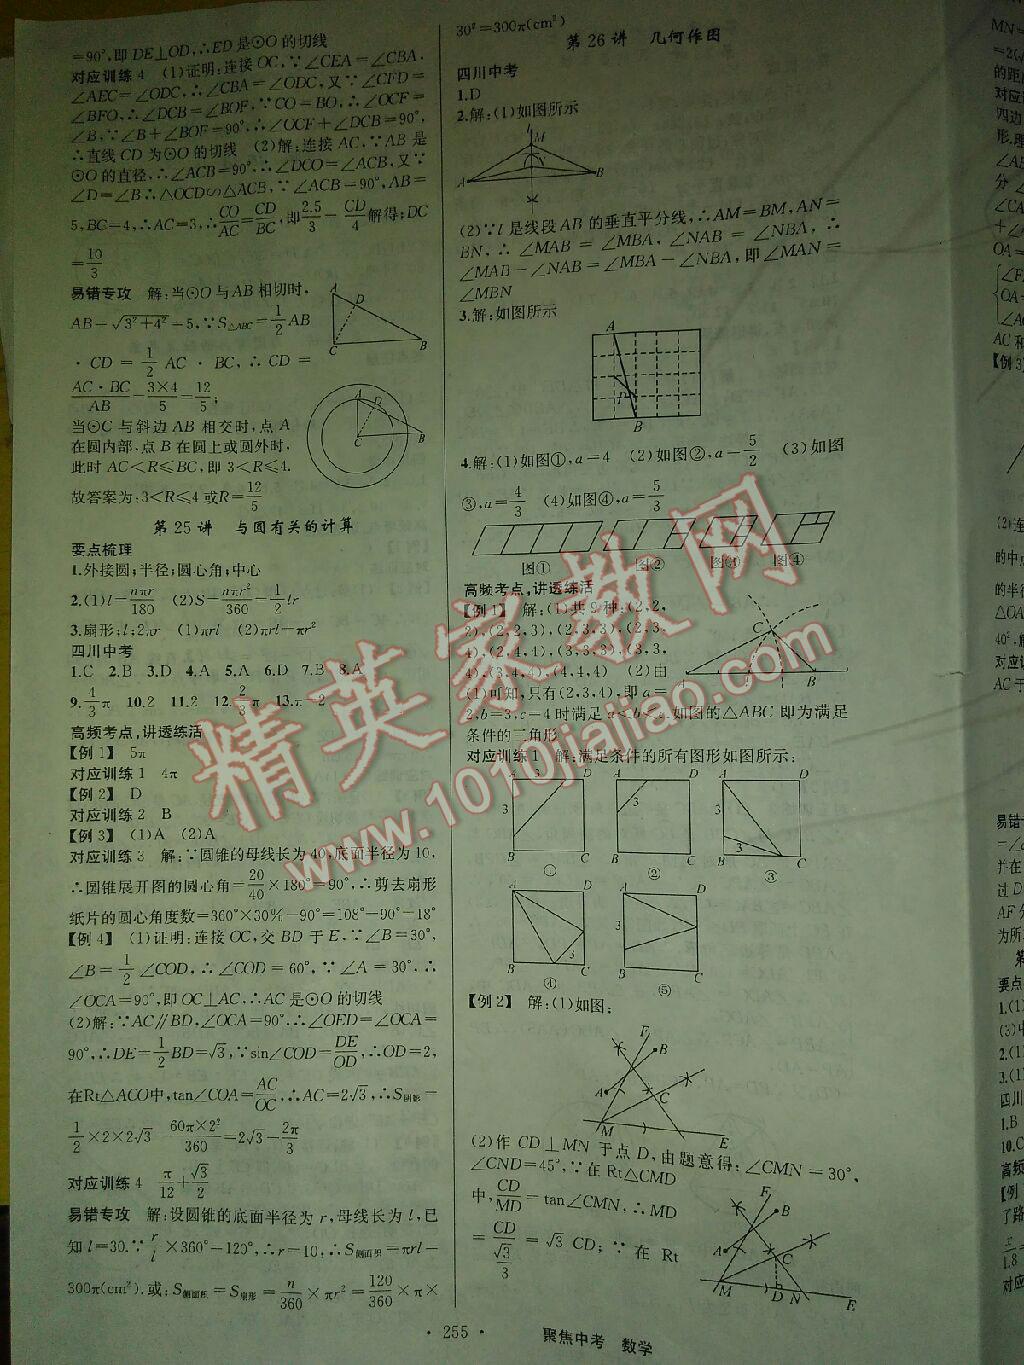 =90°,即DE⊥OD,∴ED是⊙O的切线
对应训练4 (1)证明:连接OC,∵∠CEA=∠CBA,
∠AEC=∠ODC,∴∠CBA=∠ODC,又∵∠CFD=
∠BFO,∴∠DCB=∠BOF,∵CO=BO,∴∠OCF=
∠B,∵∠B+∠BOF=90°,∴∠OCF+∠DCB=90°,
∴直线CD为⊙O的切线 (2)解:连接AC,∵AB是
⊙O的直径,∴∠ACB=90°,∴∠DCO=∠ACB,又∵
∠D=∠B∴△OCD∽△ACB,∵∠ACB=90°,AB=
5,BC=4,∴AC=3,∴CO/AC=CD/BC,即2.5/3=CD/4解得:DC
=10/3
易错专攻 解:当⊙O与AB相切时,
AB=√3²+4²=5,∵S△ABC=1/2AB
·CD=1/2AC·BC,∴CD=
AC·BC/AB=3×4/5=12/5;
当⊙C与斜边AB相交时,点A
在圆内部,点B在圆上或圆外时,
此时AC<R≤BC,即3<R≤4.
故答案为:3<R≤4或R=12/5
第25讲 与圆有关的计算
要点梳理
1.外接圆;半径;圆心角;中心
2.(1)l=nπr/180 (2)S=nπr²/360=1/2lr
3.扇形;l;2πr (1)πrl (2)πrl+πr²
四川中考
1.C 2.B 3.D 4.A 5.A 6.D 7.B 8.A
9.4/3π 10.2 11.2 12.2/3π 13.π-2
高频考点,讲透练活
【例1】 5π
对应训练1 4π
【例2】 D
对应训练2 B
【例3】 (1)A (2)A
对应训练3 解:∵圆锥的母线长为40,底面半径为10,
∴圆锥展开图的圆心角=20/40×180°=90°,∴剪去扇形
纸片的圆心角度数=360°×30%-90°=108°-90°=18°
【例4】 (1)证明:连接OC,交BD于E,∵∠B=30°,
∠B=1/2∠COD,∴∠COD=60°,∵∠A=30°,∴
∠OCA=90°,即OC⊥AC,∴AC是⊙O的切线
(2)解:∵AC∥BD,∠OCA=90°,∴∠OED=∠OCA=
90°,∴DE=1/2BD=√3,∵sin∠COD=DE/OD,∴OD=2,
在Rt△ACO中,tan∠COA=AC/OC,∴AC=2√3,∴S阴影=
1/2×2×2√3-60π×2²/360=2√3-2π/3
对应训练4 π/12+√3/2
易错专攻 解:设圆锥的底面半径为r,母线长为l,已
知l=30.∵r/l×360°=120°,∴r=10,∴S侧面积=πrl=
300π(cm²).或:S侧面积=S扇形=n/360×πr²=120/360×π×
30²=300π(cm²)
第26讲 几何作图
四川中考
1.D
2.解:(1)如图所示
M
N
A
B
(2)∵l是线段AB的垂直平分线,∴AM=BM,AN=
BN,∴∠MAB=∠MBA,∠NAB=∠NBA,∴
∠MAB-∠NAB=∠MBA-∠NBA,即∠MAN=
∠MBN
3.解:如图所示
A
P
B
4.解:(1)如图①,a=4 (2)如图②,a=5/2 (3)如图
③,a=4/3 (4)如图④,a=5/3
图① 图② 图③ 图④
高频考点,讲透练活
【例1】 解:(1)共9种:(2,2,
2),(2,2,3),(2,3,3),(2,3,
4),(2,4,4),(3,3,3),(3,3,
4),(3,4,4),(4,4,4) (2)由
(1)可知,只有(2,3,4),即a=
2,b=3,c=4时满足a<b<c.如图的△ABC即为满足
条件的三角形
对应训练1 解:满足条件的所有图形如图所示:
① ② ③
④ ⑤
【例2】 解:(1)如图:
(2)作CD⊥MN于点D,由题意得:∠CMN=30°,
∠CND=45°,∵在Rt△CMD
中,CD/MD=tan∠CMN,∴MD
=CD/(√3/3)=√3CD;∵在Rt
· 255 ·
聚焦中考 数学
精英家教网
www.1010jiajiao.com